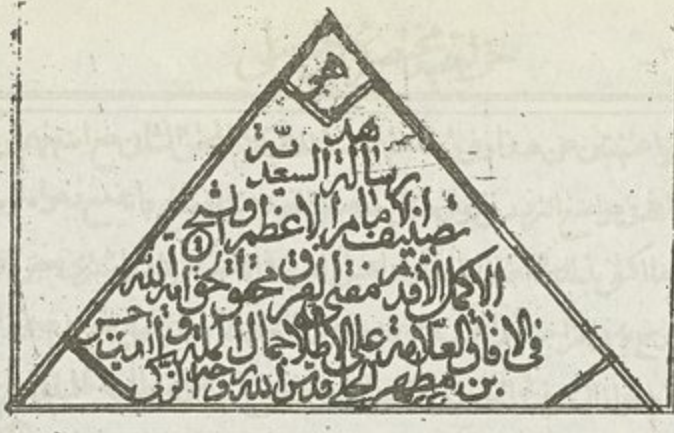 هو
هذ
رسالة السعدية
تصنيف الامام الاعظم والشيخ
الاكمل الاقدم مفتى الفرق محقق حق آية الله
فى الافاق العلامة على الاطلاق جمال الملة و
بن مطهر الحلى قدس الله روحه الزكى